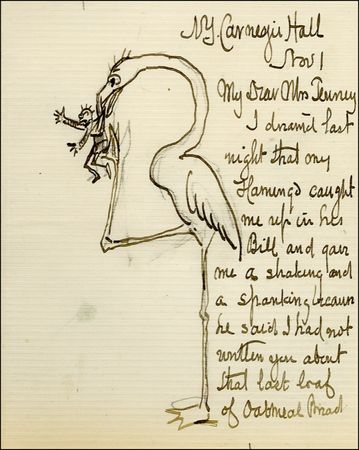 NY. Carnegie Hall
Nov 1
My Dear Mrs Tenney
I dreamt last
night that my
Flamingo caught
me up in his
Bill and gave
me a shaking and
a spanking because
he said I had not
written you about
that last loaf
of Oatmeal Bread